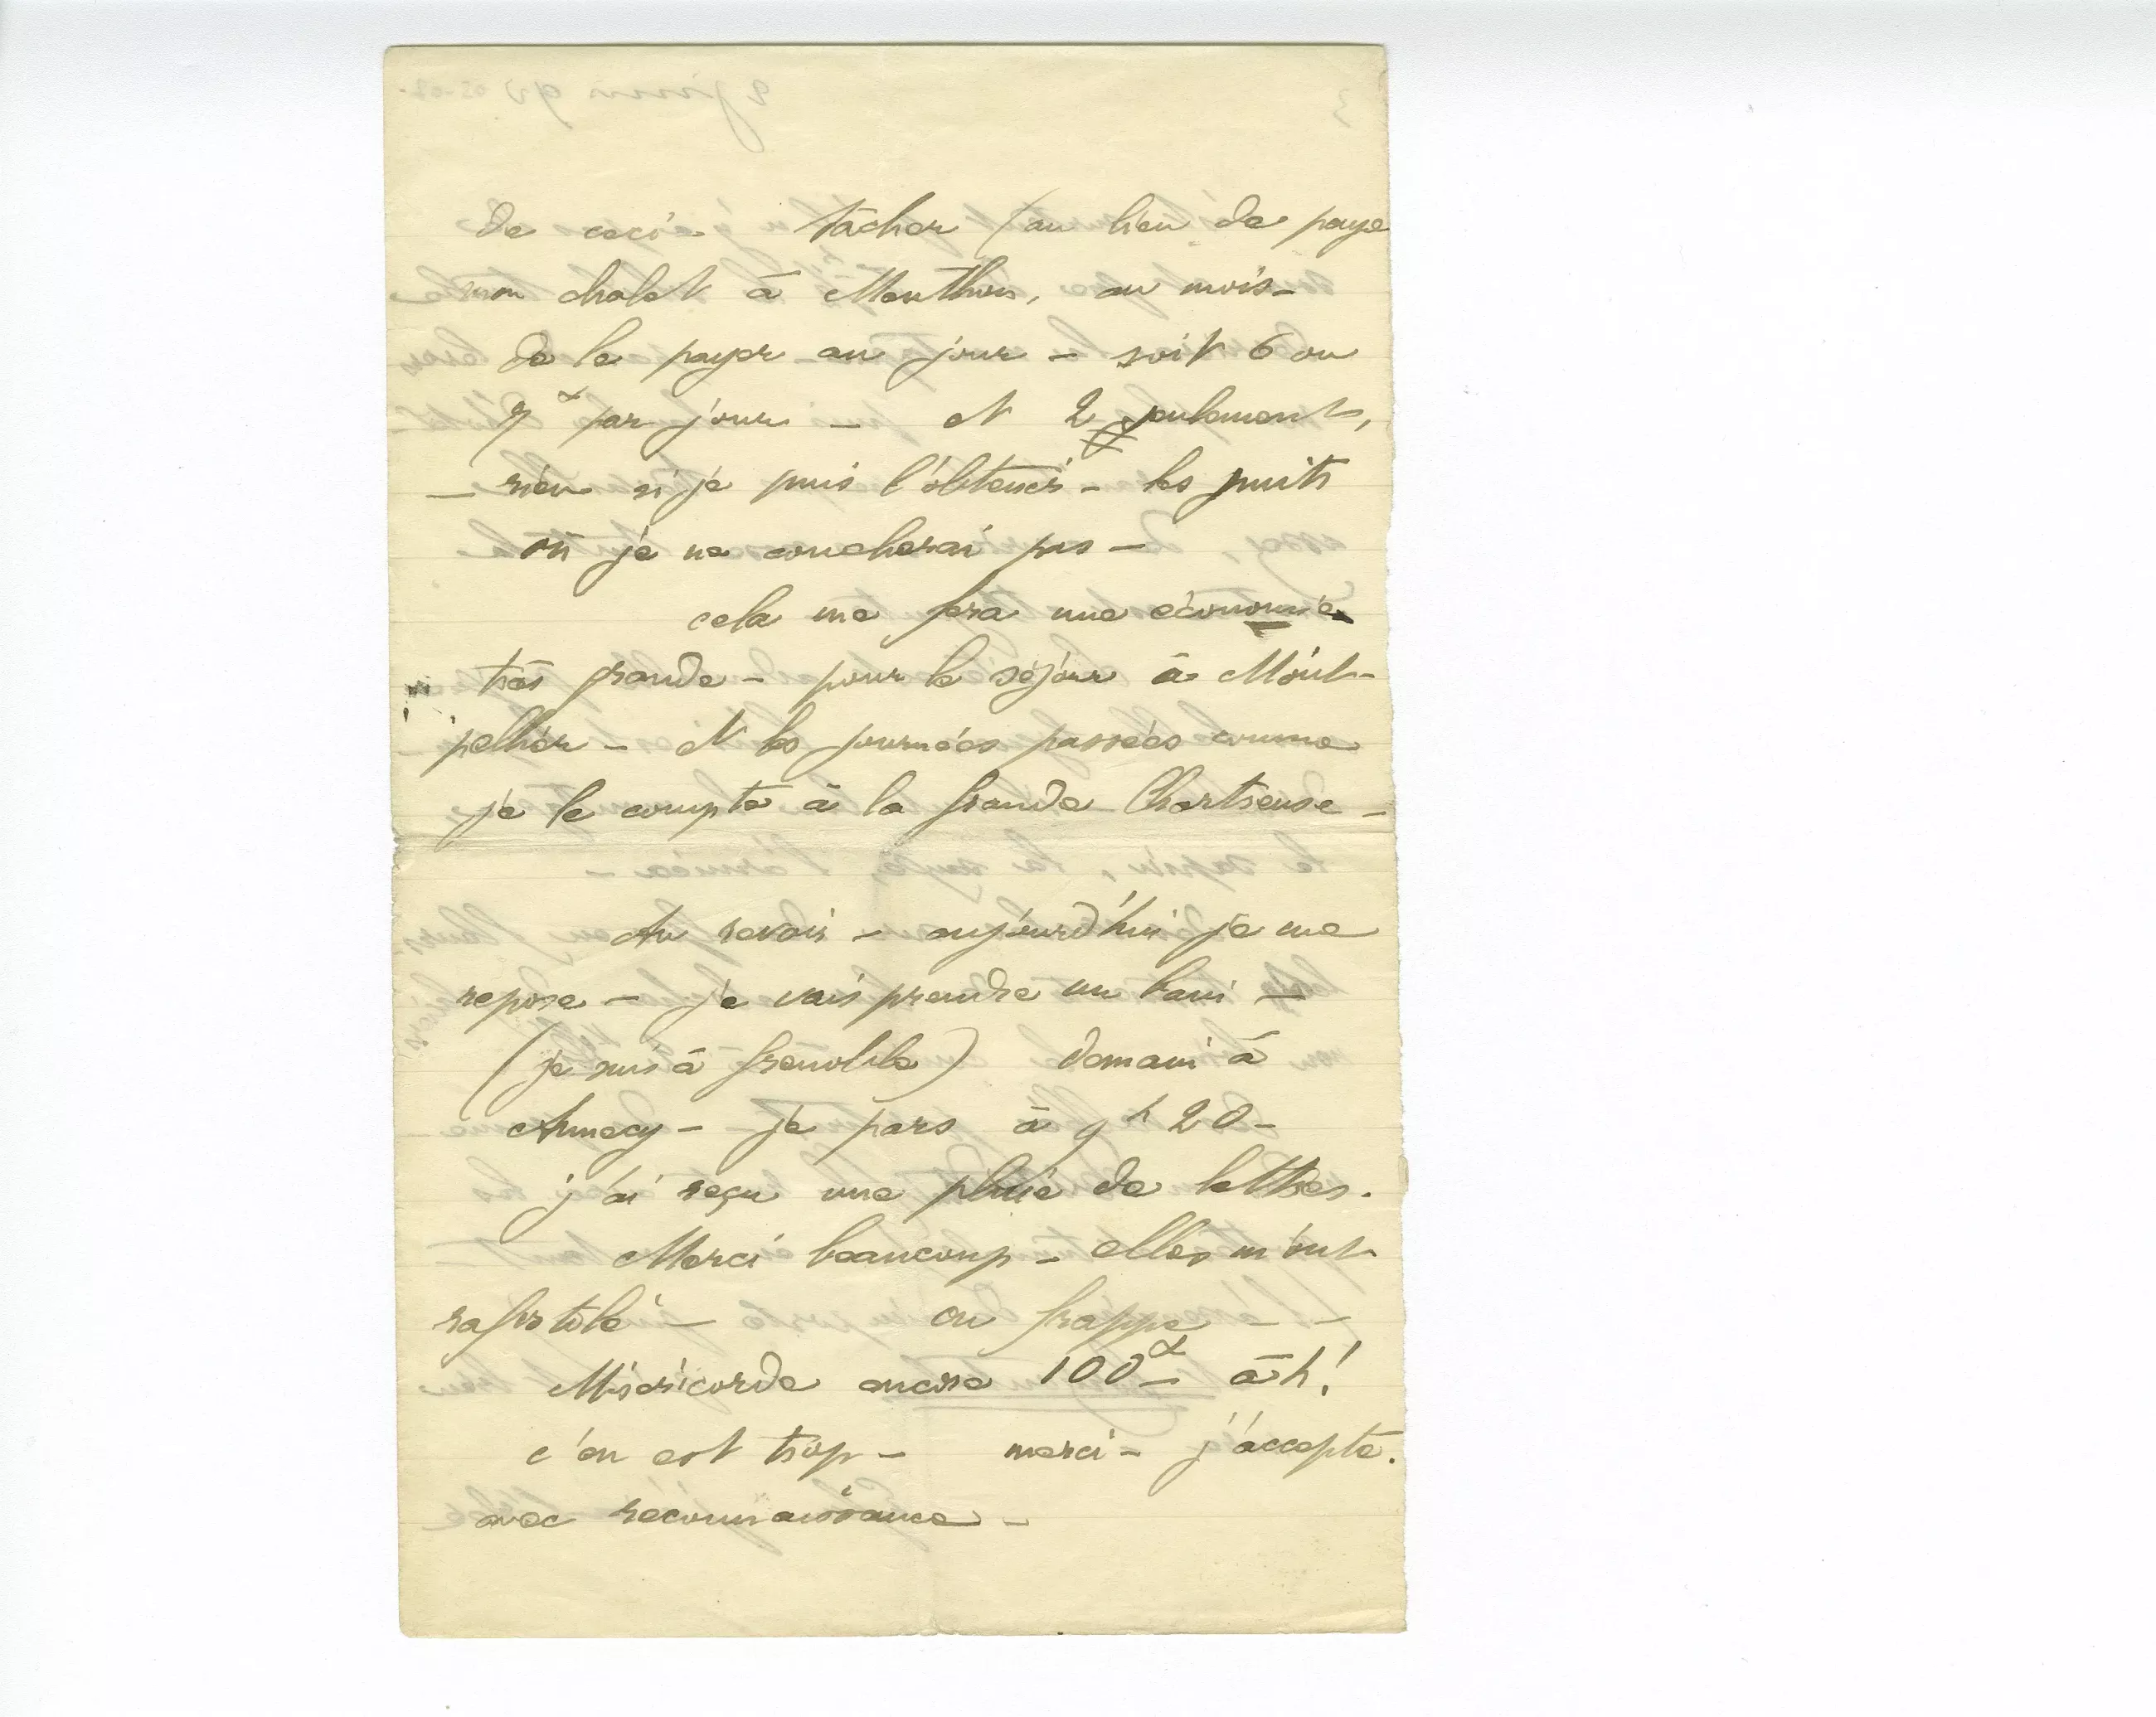 de ceci tâcher (au lieu de paye
mon chalet à Menthon, au mois –
de le payer au jour – soit 6 ou
7 f par jour – et 2 f seulement,
– rien si je puis l'obtenir – les nuits
où je ne coucherai pas –
cela me fera une économie
très grande – pour le séjour à Mont-
pellier – et les journées passées comme
je le compte à la Grande Chartreuse –
Au revoir – aujourd'hui je me
repose – je vais prendre un bain –
(je suis à Grenoble) demain à
Annecy – je pars à 9 h 20 –
j'ai reçu une pluie de lettres.
Merci beaucoup – elles m'ont
rafistolé – on frappe – –
Miséricorde encore 100 f – ah!
c'en est trop – merci – j'accepte.
avec reconnaissance –